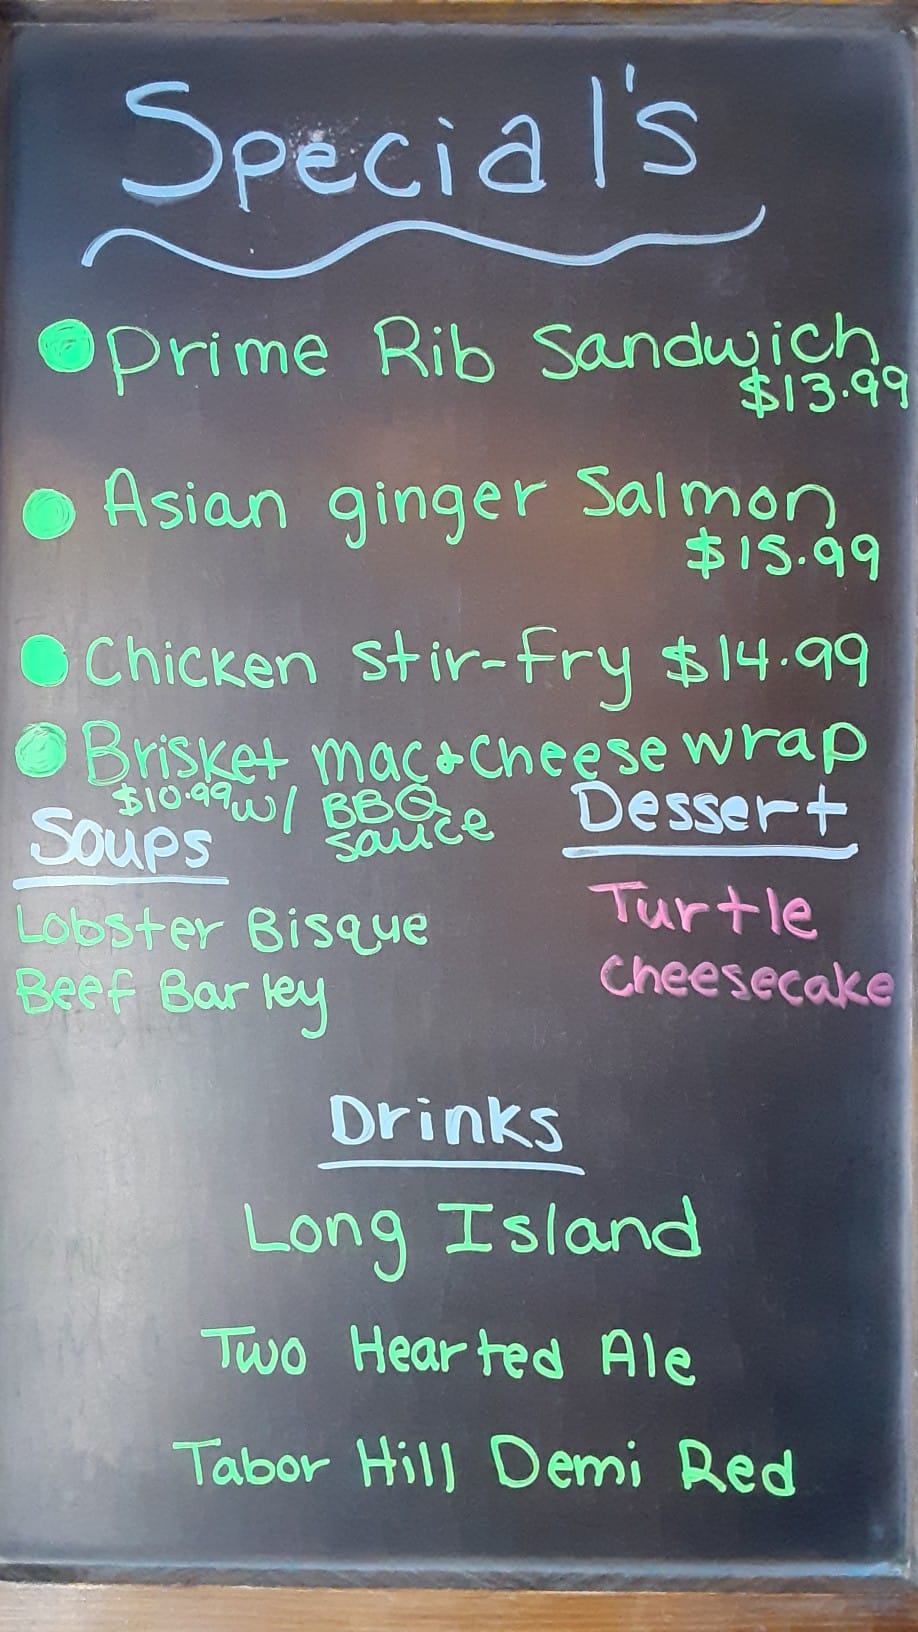 Special's
Prime Rib Sandwich
$13.99
Asian ginger Salmon
$15.99
Chicken stir-fry $14.99
Brisket mac & cheese wrap
$10.99 w/ BBQ
sauce
Soups
Lobster Bisque
Beef Barley
Dessert
Turtle
cheesecake
Drinks
Long Island
Two Hearted Ale
Tabor Hill Demi Red